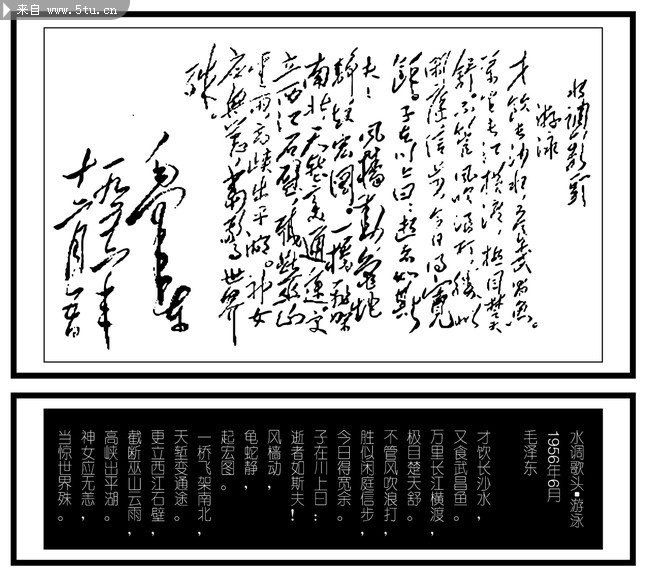 来自 www.5tu.cn
水調歌頭
游泳
才饮长沙水,又食武昌魚。
萬里长江横渡,极目楚天
舒。不管风吹浪打,胜似
闲庭信步,今日得寬
馀。子在川上曰:逝者如斯
夫!风樯動,龟蛇
静,起宏图。一橋飞架
南北,天堑变通途。更
立西江石壁,截断巫山
雲雨,高峡出平湖。神女
应無恙,当驚世界
殊。
毛泽东
一九五六年
十二月五日
水调歌头·游泳
1956年6月
毛泽东
才饮长沙水,
又食武昌鱼。
万里长江横渡,
极目楚天舒。
不管风吹浪打,
胜似闲庭信步,
今日得宽余。
子在川上曰:
逝者如斯夫!
风樯动,
龟蛇静,
起宏图。
一桥飞架南北,
天堑变通途。
更立西江石壁,
截断巫山云雨,
高峡出平湖。
神女应无恙,
当惊世界殊。